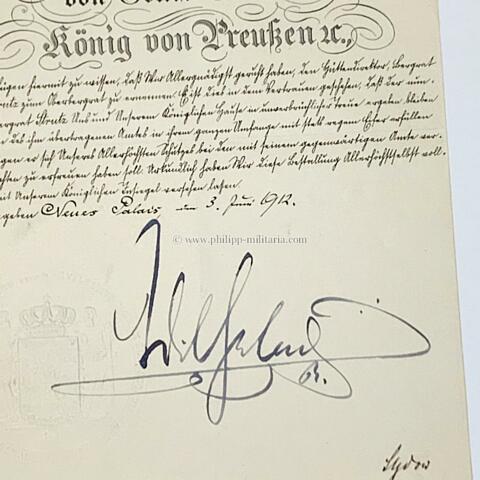 von
König von Preußen ꝛc.,
igen hiermit zu wissen, daß Wir Allergnädigst geruht haben, den Hüttendirektor, Bergrat
zum Oberbergrat zu ernennen. Es ist dies in dem Vertrauen geschehen, daß der nun-
ergrat Uns und Unserem Königlichen Hause in unverbrüchlicher Treue ergeben bleiben
die des ihm übertragenen Amtes in ihrem ganzen Umfange mit stets regem Eifer erfüllen
gen er sich Unseres Allerhöchsten Schutzes bei den mit seinem gegenwärtigen Amte ver-
chten zu erfreuen haben soll. Urkundlich haben Wir diese Bestallung Allerhöchstselbst voll-
mit Unserem Königlichen Insiegel versehen lassen.
geben Neues Palais, den 3. Juni 1912.
© www.philipp-militaria.com
Wilhelm
R.
Sydow